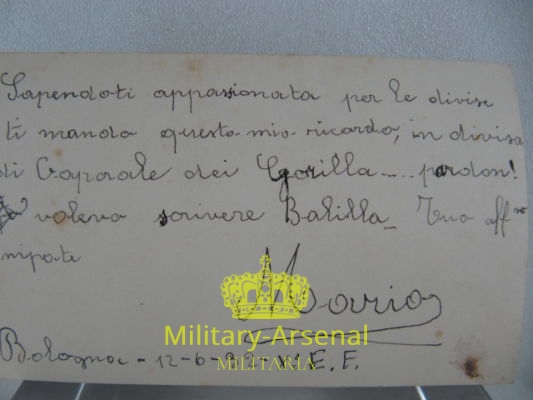 Sapendoti appassionata per le divise
ti mando questo mio ricordo, in divisa
di Caporale dei Gorilla..... pardon!
volevo scrivere Balilla_ Tuo aff.mo
nipote
Mario
Military-Arsenal
MILITARIA
Bologna - 12-6- E. F.